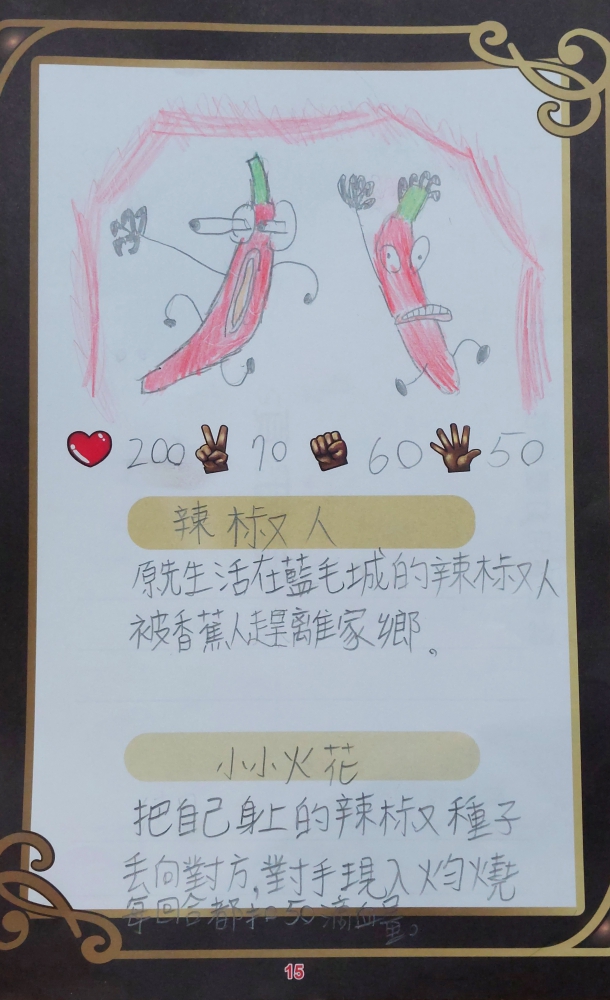 200 70 60 50
辣椒人
原先生活在藍毛城的辣椒人
被香蕉人趕離家鄉。
小小火花
把自己身上的辣椒種子
丟向對方,對手現入灼燒
每回合都扣50滴血量。
15